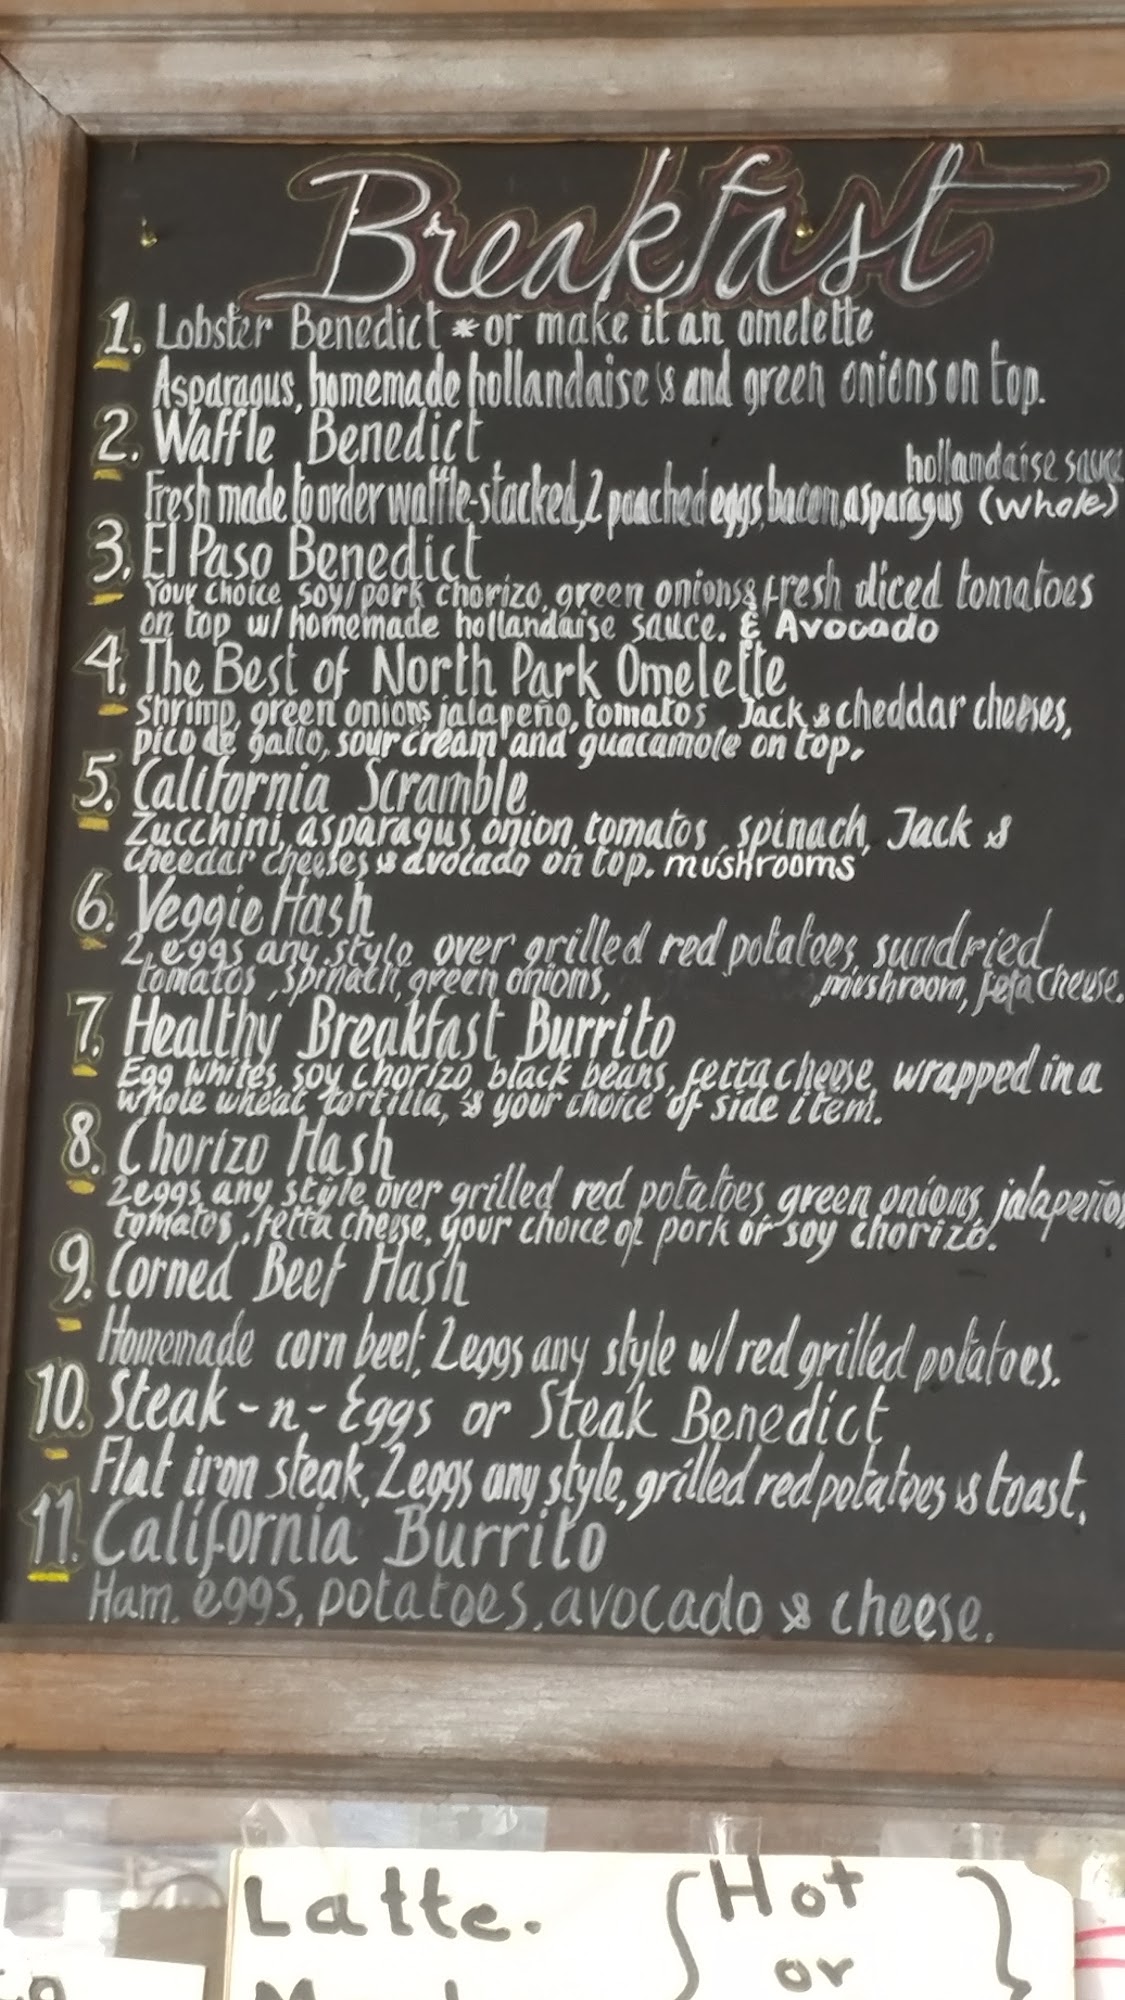 Breakfast
1. Lobster Benedict * or make it an omelette
Asparagus, homemade hollandaise & and green onions on top.
2. Waffle Benedict
hollandaise sauce
Fresh made to order waffle-stacked, 2 poached eggs, bacon, asparagus (whole)
3. El Paso Benedict
Your choice soy/pork chorizo, green onions & fresh diced tomatoes
on top w/ homemade hollandaise sauce. & Avocado
4. The Best of North Park Omelette
Shrimp, green onions, jalapeño, tomatos, Jack & cheddar cheeses,
pico de gallo, sour cream and guacamole on top.
5. California Scramble
Zucchini, asparagus, onion, tomatos, spinach, Jack &
Cheedar cheeses & avocado on top. mushrooms
6. Veggie Hash
2 eggs any style over grilled red potatoes, sundried
tomatos, spinach, green onions, , mushroom, feta cheese.
7. Healthy Breakfast Burrito
Egg whites, soy chorizo, black beans, fetta cheese, wrapped in a
whole wheat tortilla, & your choice of side item.
8. Chorizo Hash
2 eggs any style over grilled red potatoes, green onions, jalapeños
tomatos, fetta cheese, your choice of pork or soy chorizo.
9. Corned Beef Hash
Homemade corn beef, 2 eggs any style w/ red grilled potatoes.
10. Steak-n-Eggs or Steak Benedict
Flat iron steak, 2 eggs any style, grilled red potatoes & toast.
11. California Burrito
Ham, eggs, potatoes, avocado & cheese.
Latte. { Hot }
or